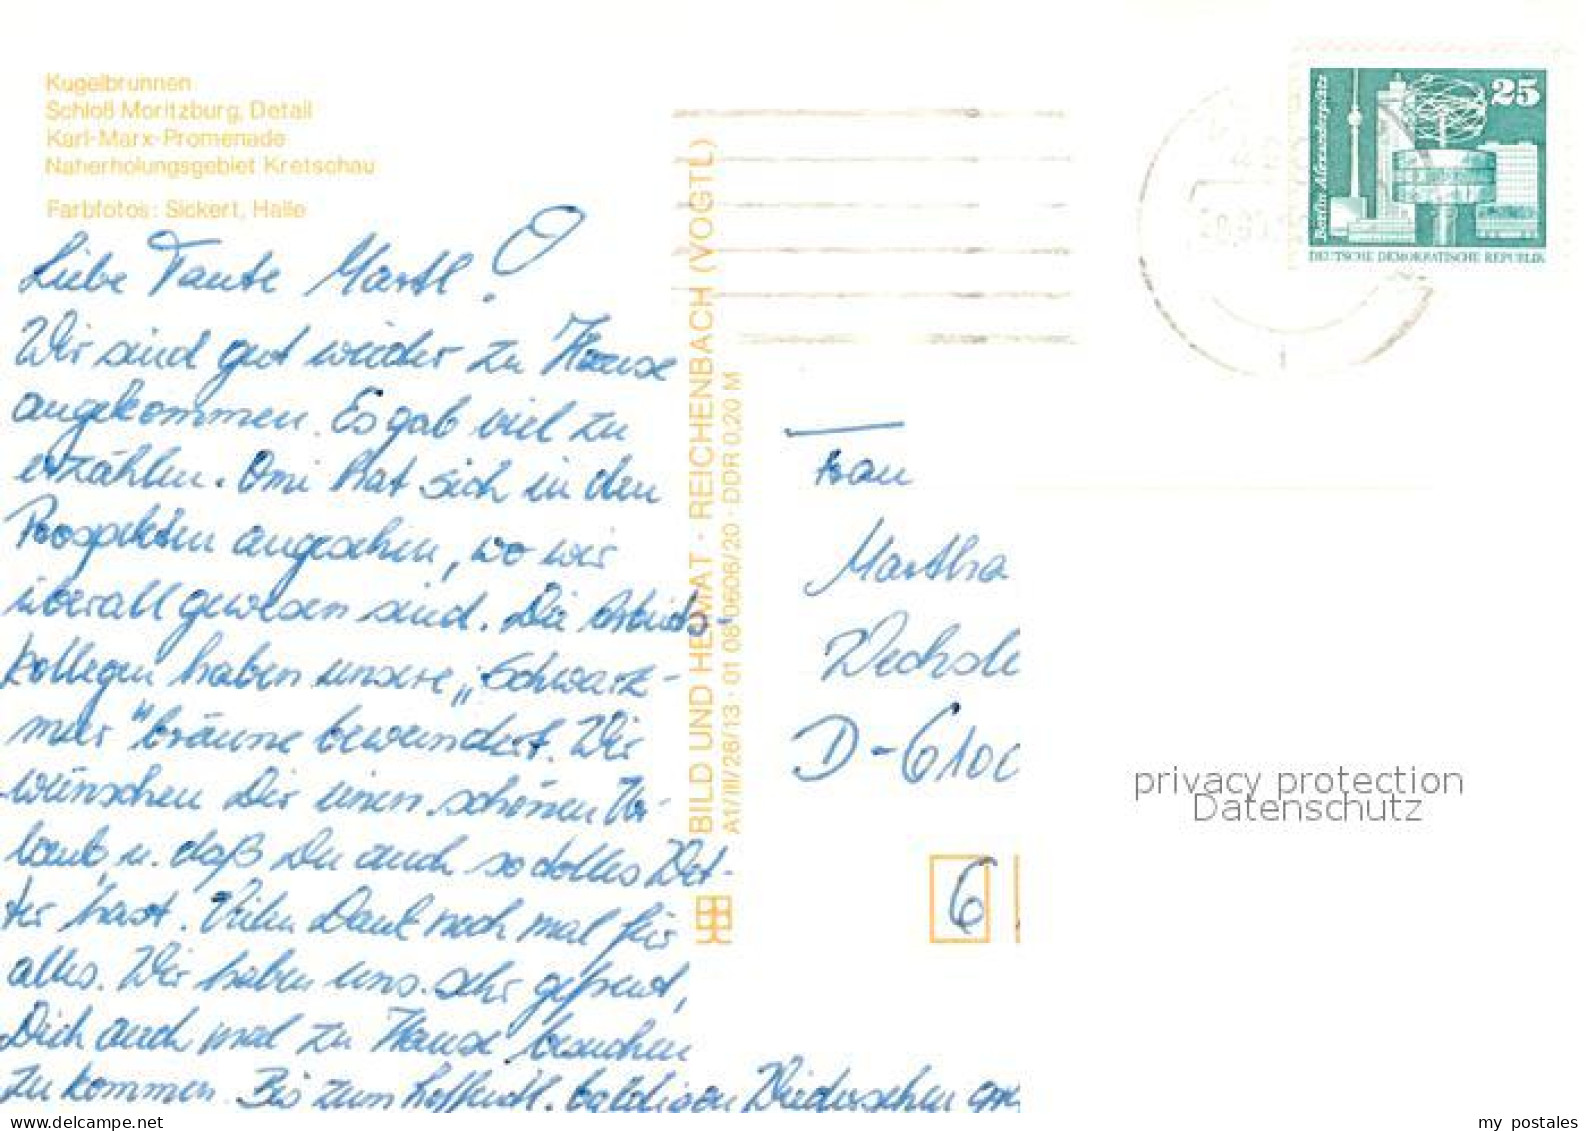 Kugelbrunnen
Schloß Moritzburg, Detail
Karl-Marx-Promenade
Naherholungsgebiet Kretschau
Farbfotos: Sickert, Halle
Liebe Tante Martl!
Wir sind gut wieder zu Hause
angekommen. Es gab viel zu
erzählen. Omi hat sich in den
Prospekten angesehen, wo wir
überall gewesen sind. Die Arbeits-
kollegen haben unsere „Schwarz-
meer"bräune bewundert. Wir
wünschen Dir einen schönen Ur-
laub u. daß Du auch so dolles Wet-
ter hast. Vielen Dank noch mal für
alles. Wir haben uns sehr gefreut,
Dich auch mal zu Hause besuchen
zu kommen. Bis zum hoffentl. baldigen Wiedersehen
BILD UND HEIMAT · REICHENBACH (VOGTL)
A1/III/26/13 · 01 08 0606/20 · DDR 0,20 M
Berlin Alexanderplatz
25
DEUTSCHE DEMOKRATISCHE REPUBLIK
Frau
Martha
Wechsle
D-6100
6
privacy protection
Datenschutz
my postales